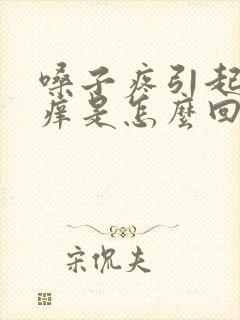 嗓子疼引起
痒是怎麼回
宋侃夫